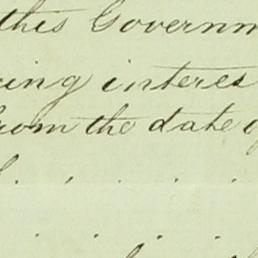 this Governm
ring interes
from the date of